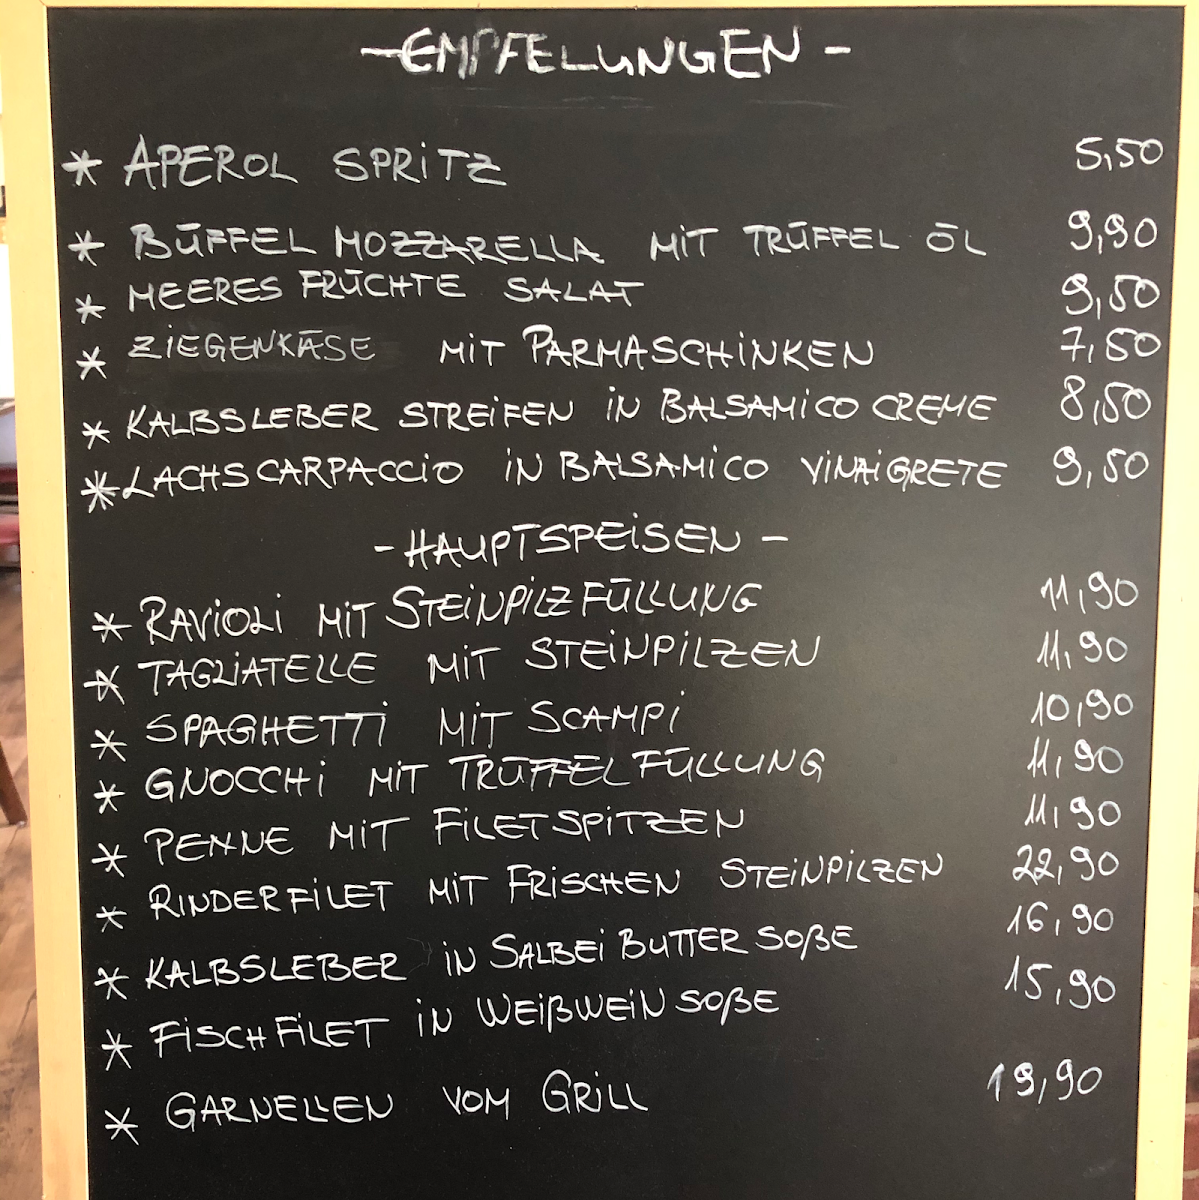 -EMPFELUNGEN-
* APEROL SPRiTZ 5,50
* BÜFFEL MOZZARELLA MiT TRÜFFEL ÖL 9,90
* MEERES FRÜCHTE SALAT 9,50
* ZiEGENKÄSE MiT PARMASCHiNKEN 7,50
* KALBSLEBER STREiFEN iN BALSAMiCO CREME 8,50
* LACHS CARPACCiO iN BALSAMiCO ViNAiGRETE 9,50
-HAUPTSPEiSEN-
* RAViOLi MiT STEiNPiLZ FÜLLUNG 11,90
* TAGLiATELLE MiT STEiNPiLZEN 11,90
* SPAGHETTi MiT SCAMPi 10,90
* GNOCCHi MiT TRÜFFEL FÜLLUNG 11,90
* PENNE MiT FiLETSPiTZEN 11,90
* RiNDERFiLET MiT FRiSCHEN STEiNPiLZEN 22,90
* KALBSLEBER iN SALBEi BUTTER SOßE 16,90
* FiSCHFiLET iN WEißWEiN SOßE 15,90
* GARNELLEN VOM GRiLL 19,90